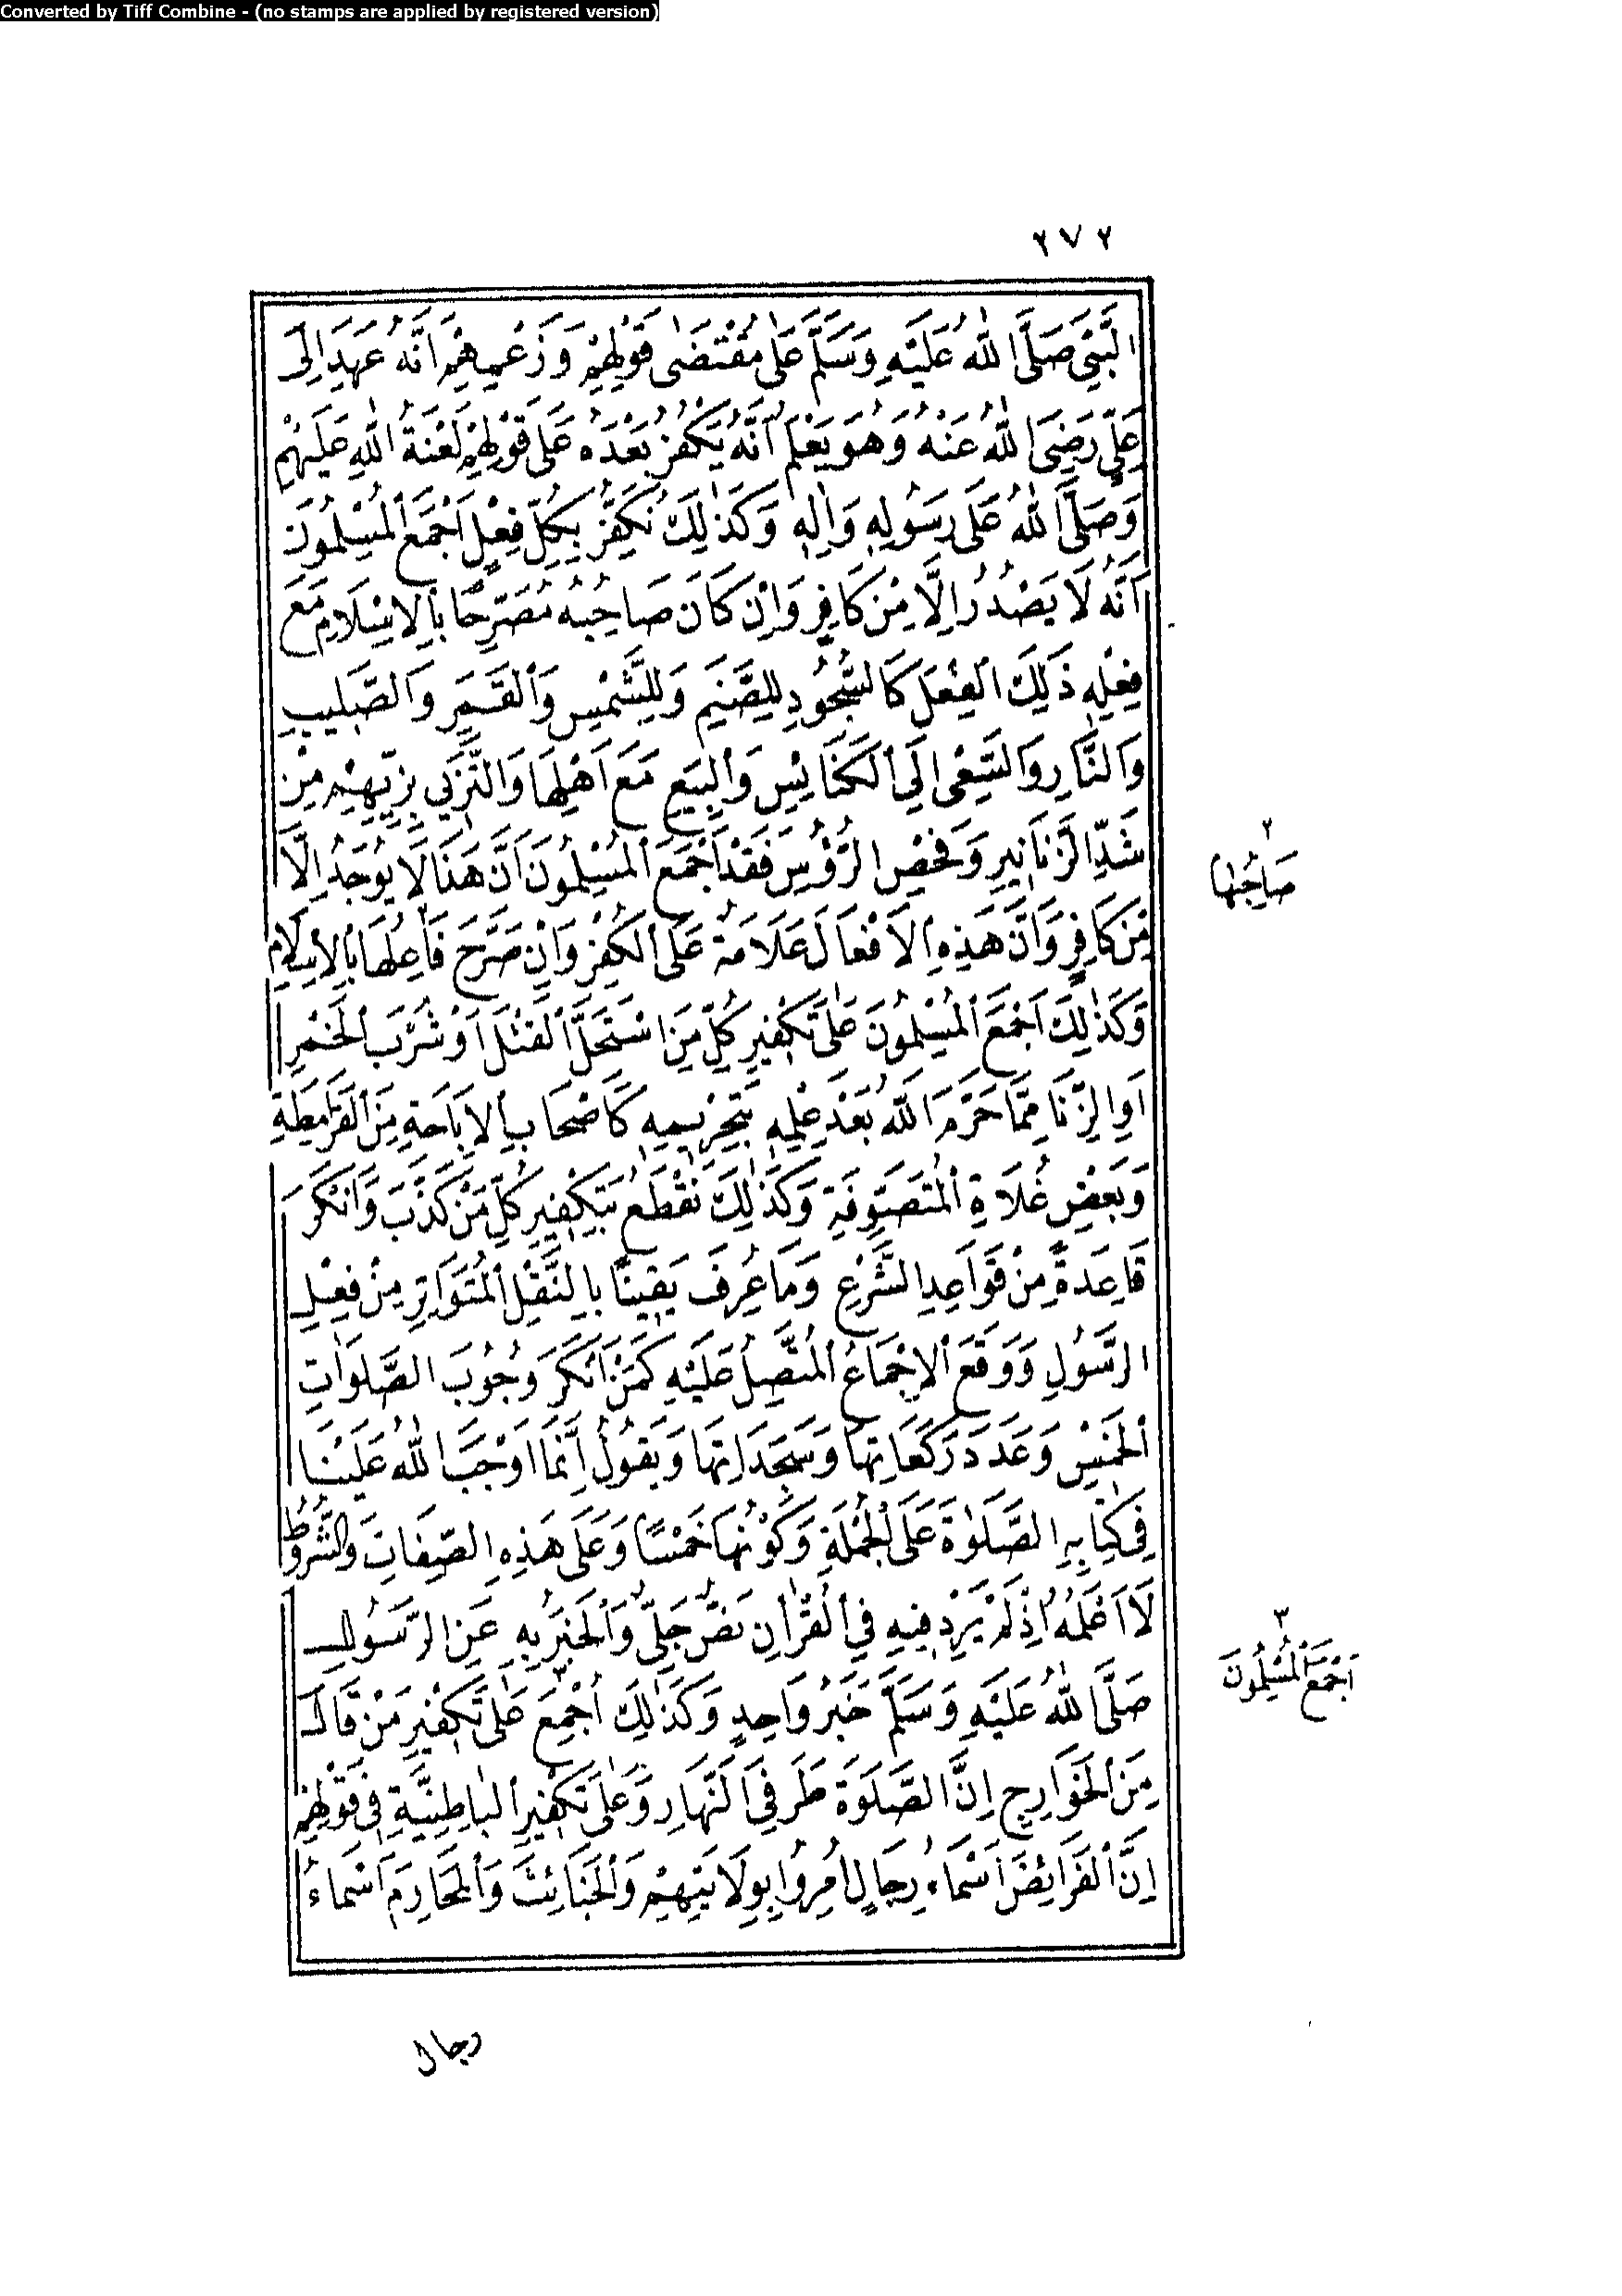 Converted by Tiff Combine - (no stamps are applied by registered version)
٢٧٢
النَّبِيِّ صَلَّى اللّٰهُ عَلَيْهِ وَسَلَّمَ عَلَى مُقْتَضَى قَوْلِهِمْ وَزَعْمِهِمْ اَنَّهُ عَهِدَ اِلَى
عَلِيٍّ رَضِيَ اللّٰهُ عَنْهُ وَهُوَ يَعْلَمُ اَنَّهُ يَكْفُرُ بَعْدَهُ عَلَى قَوْلِهِمْ لَعْنَةُ اللّٰهِ عَلَيْهِمْ
وَصَلَّى اللّٰهُ عَلَى رَسُولِهِ وَاٰلِهِ وَكَذٰلِكَ نُكَفِّرُ بِكُلِّ فِعْلٍ اَجْمَعَ الْمُسْلِمُونَ
اَنَّهُ لَا يَصْدُرُ اِلَّا مِنْ كَافِرٍ وَاِنْ كَانَ صَاحِبُهُ مُصَرِّحًا بِالْاِسْلَامِ مَعَ
فِعْلِهِ ذٰلِكَ الْفِعْلَ كَالسُّجُودِ لِلصَّنَمِ وَلِلشَّمْسِ وَالْقَمَرِ وَالصَّلِيبِ
وَالنَّارِ وَالسَّعْىِ اِلَى الْكَنَائِسِ وَالْبِيَعِ مَعَ اَهْلِهَا وَالتَّزَيِّي بِزِيِّهِمْ مِنْ
شَدِّ الزَّنَانِيرِ وَفَحْصِ الرُّؤُسِ فَقَدْ اَجْمَعَ الْمُسْلِمُونَ اَنَّ هَذَا لَا يُوجَدُ اِلَّا
مِنْ كَافِرٍ وَاَنَّ هَذِهِ الْاَفْعَالَ عَلَامَةٌ عَلَى الْكُفْرِ وَاِنْ صَرَّحَ فَاعِلُهَا بِالْاِسْلَامِ
وَكَذٰلِكَ اَجْمَعَ الْمُسْلِمُونَ عَلَى تَكْفِيرِ كُلِّ مَنِ اسْتَحَلَّ الْقَتْلَ اَوْ شُرْبَ الْخَمْرِ
اَوِ الزِّنَا مِمَّا حَرَّمَ اللّٰهُ بَعْدَ عِلْمِهِ بِتَحْرِيمِهِ كَاَصْحَابِ الْاِبَاحَةِ مِنَ الْقَرَامِطَةِ
وَبَعْضِ غُلَاةِ الْمُتَصَوِّفَةِ وَكَذٰلِكَ نَقْطَعُ بِتَكْفِيرِ كُلِّ مَنْ كَذَّبَ وَاَنْكَرَ
قَاعِدَةً مِنْ قَوَاعِدِ الشَّرْعِ وَمَا عُرِفَ يَقِينًا بِالنَّقْلِ الْمُتَوَاتِرِ مِنْ فِعْلِ
الرَّسُولِ وَوَقَعَ الْاِجْمَاعُ الْمُتَّصِلُ عَلَيْهِ كَمَنْ اَنْكَرَ وُجُوبَ الصَّلَوَاتِ
الْخَمْسِ وَعَدَدَ رَكَعَاتِهَا وَسَجَدَاتِهَا وَيَقُولُ اِنَّمَا اَوْجَبَ اللّٰهُ عَلَيْنَا
فِى كِتَابِهِ الصَّلٰوةَ عَلَى الْجُمْلَةِ وَكَوْنُهَا خَمْسًا وَعَلَى هَذِهِ الصِّفَاتِ وَالشُّرُوطِ
لَا اَعْلَمُهُ اِذْ لَمْ يَرِدْ فِيهِ فِي الْقُرْاٰنِ نَصٌّ جَلِيٌّ وَالْخَبَرُ بِهِ عَنِ الرَّسُولِ
صَلَّى اللّٰهُ عَلَيْهِ وَسَلَّمَ خَبَرُ وَاحِدٍ وَكَذٰلِكَ اُجْمِعَ عَلَى تَكْفِيرِ مَنْ قَالَ
مِنَ الْخَوَارِجِ اِنَّ الصَّلَوةَ طَرَفَيِ النَّهَارِ وَعَلَى تَكْفِيرِ الْبَاطِنِيَّةِ فِى قَوْلِهِمْ
اِنَّ الْفَرَائِضَ اَسْمَاءُ رِجَالٍ اُمِرُوا بِوِلَايَتِهِمْ وَالْخَبَائِثَ وَالْمَحَارِمَ اَسْمَاءُ
٢
صَاحِبُهَا
٣
اَجْمَعَ الْمُسْلِمُونَ
رجال